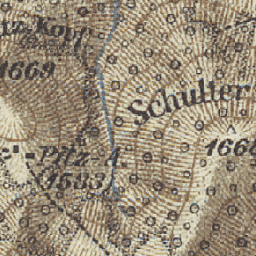 tz Kopf
1669
Schulter
166
Pitz-A
1583